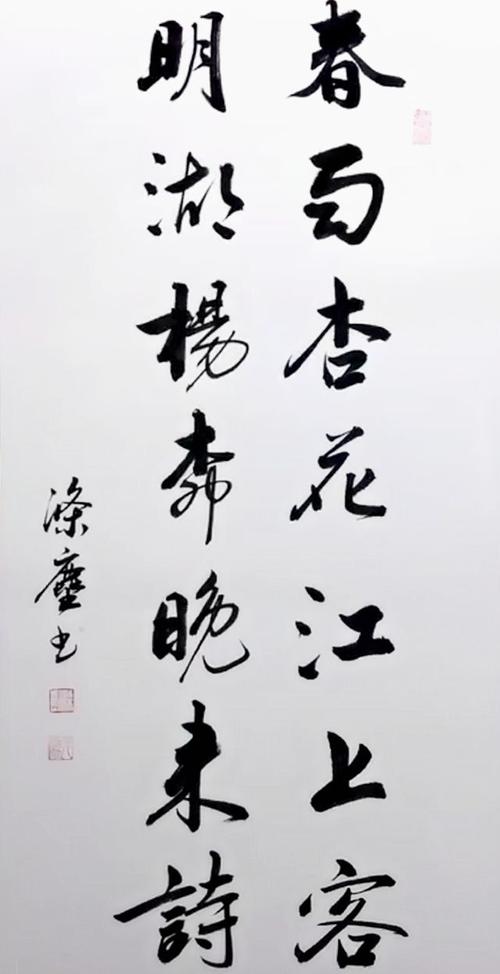 春雨杏花江上客
明湖楊柳晚來詩
滌塵书